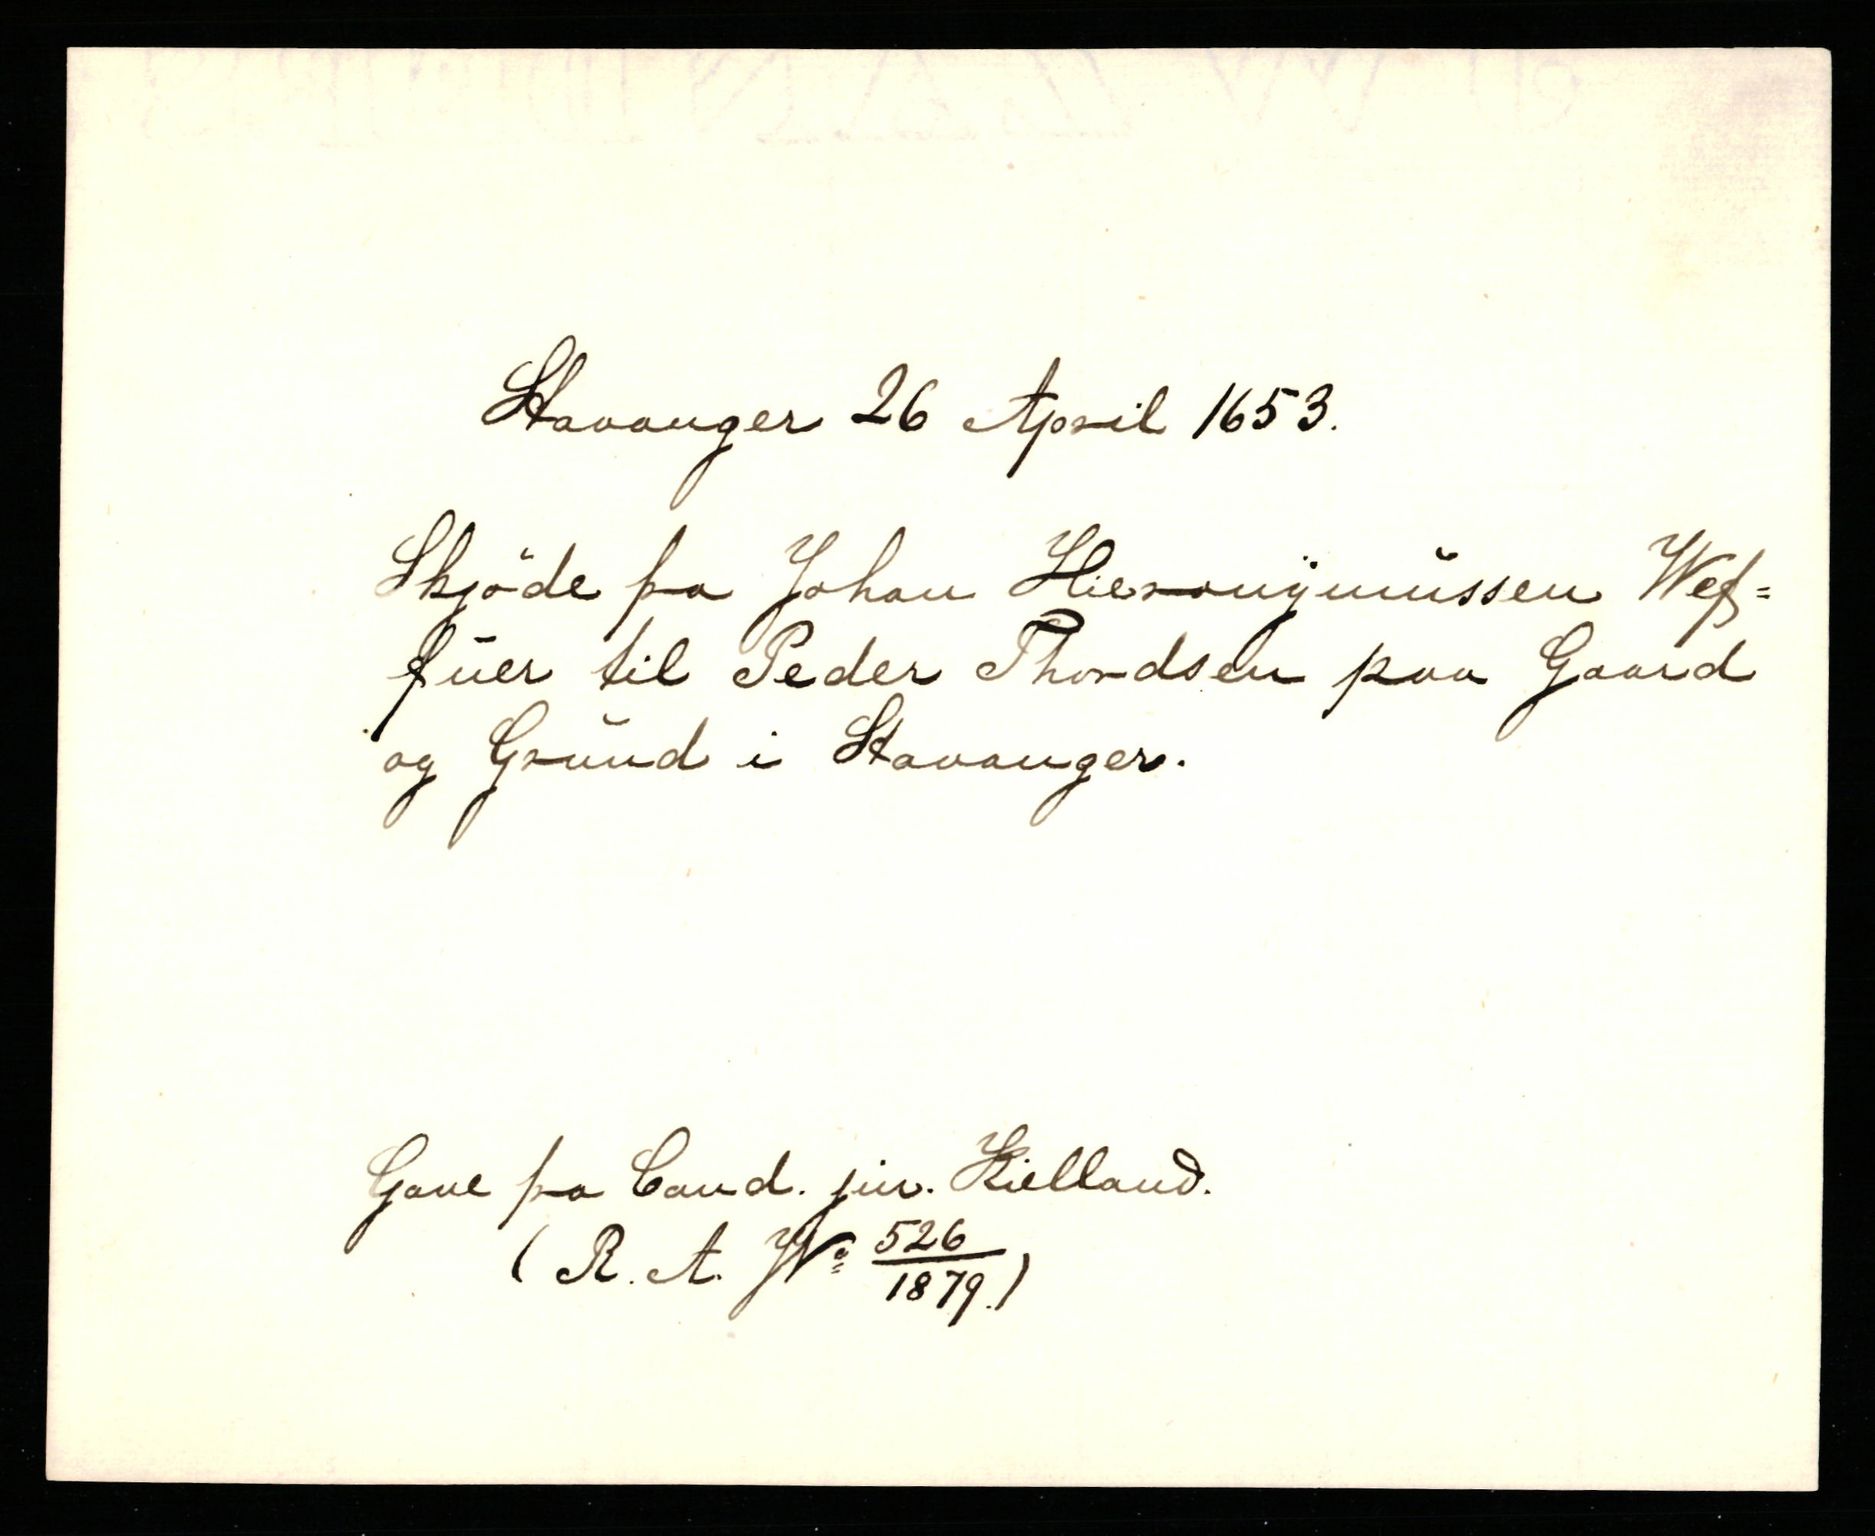 Stavanger 26 April 1653.
Skjöde fra Johan Hieronÿmussen Wef=
fuer til Peder Thordsen paa Gaard
og Grund i Stavanger.
Gave fra Cand. jur. Kielland.
(R. A. No 526/1879.)